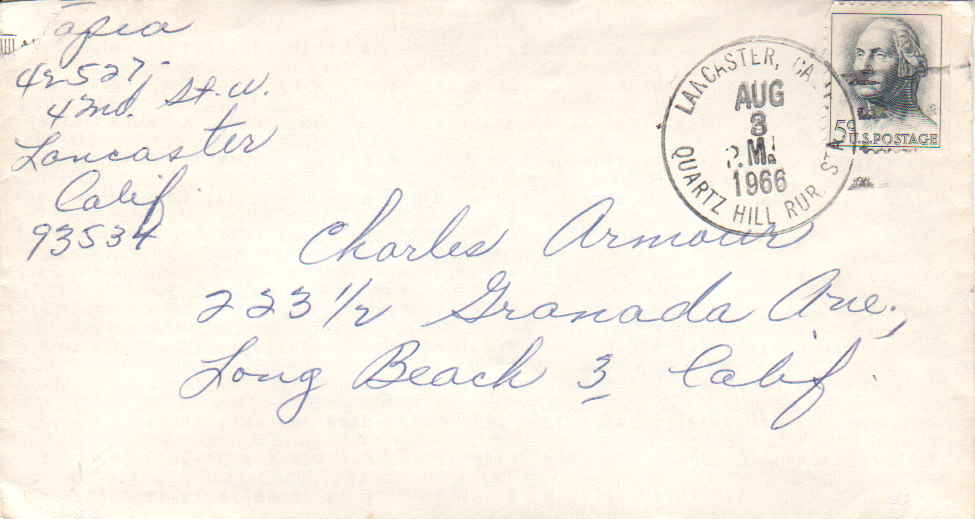 Tapia
42527
42nd. St. W.
Lancaster
Calif.
93534
LANCASTER, CA
AUG
3
P.M.
1966
QUARTZ HILL RUR. STA.
5¢
U.S. POSTAGE
Charles Armour
223 1/2 Granada Ave.,
Long Beach 3 Calif.